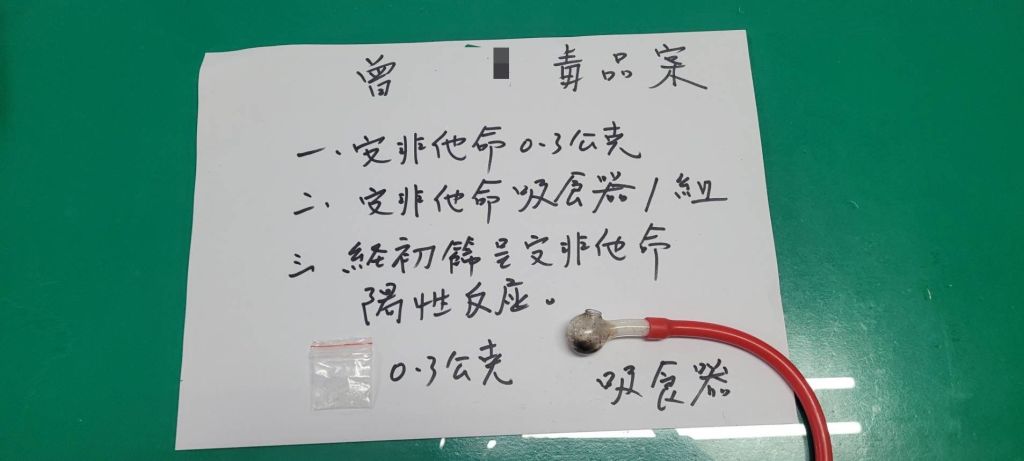 曾 毒品案
一、安非他命0.3公克
二、安非他命吸食器1組
三、經初篩呈安非他命
陽性反应。
0.3公克
吸食器